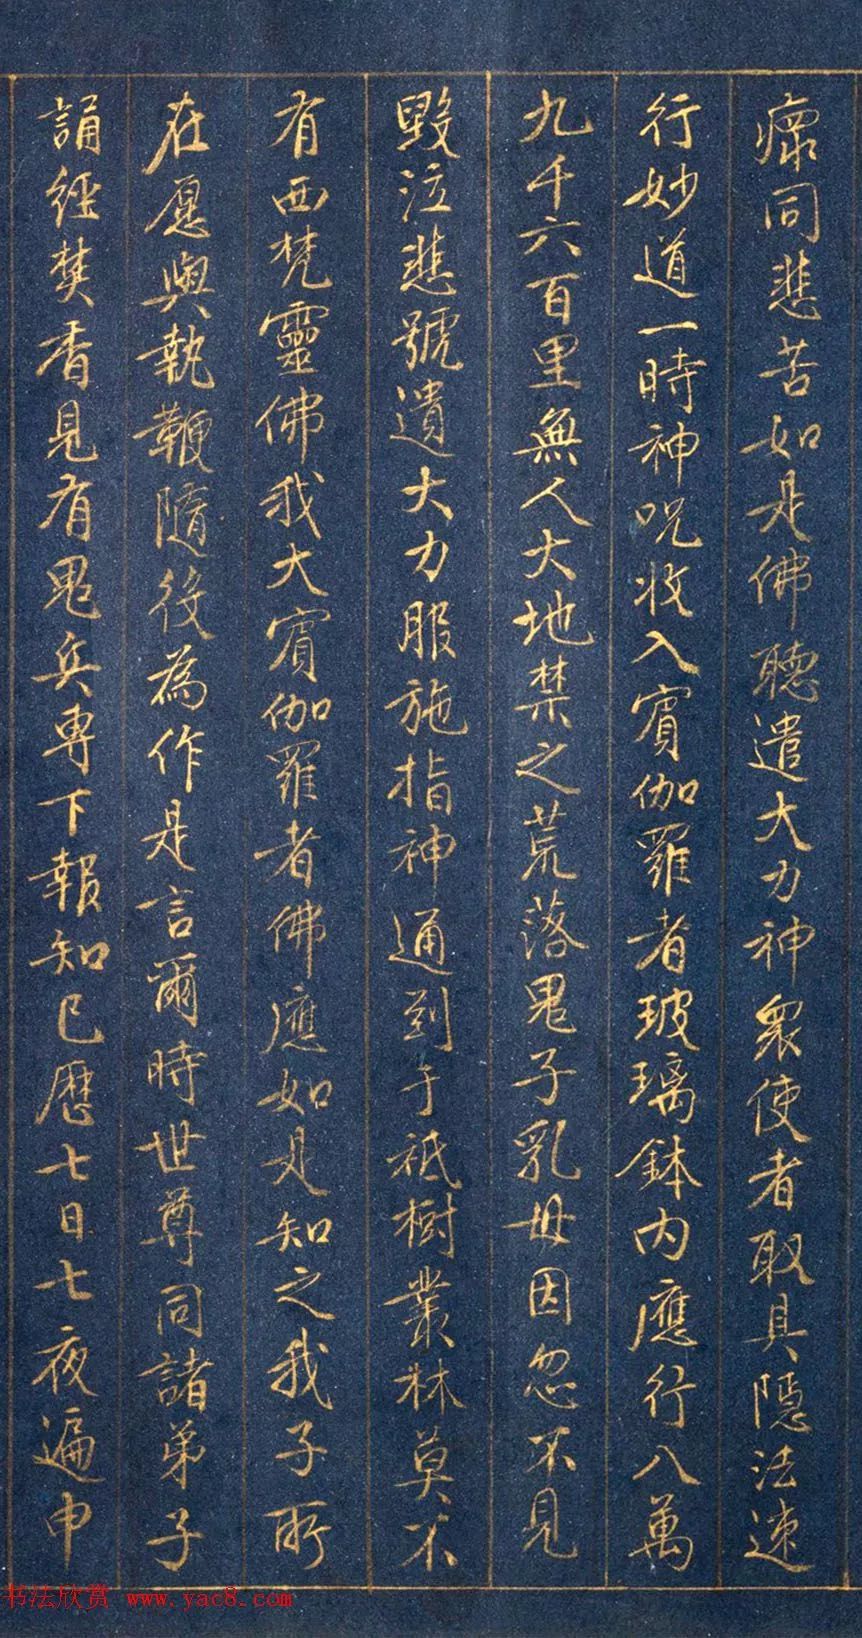 瘝同悲苦如是佛聽遣大力神眾使者取具隱法速
行妙道一時神呪收入賓伽羅者玻璃鉢內應行八萬
九千六百里無人大地禁之荒落鬼子乳母因忽不見
毀泣悲號遺大力服施指神通到于祇樹叢林莫不
有西梵靈佛我大賓伽羅者佛應如是知之我子所
在愿與執鞭隨後為作是言爾時世尊同諸弟子
誦經焚香見有鬼兵專下報知已歷七日七夜遍申
书法欣赏 www.yac8.com